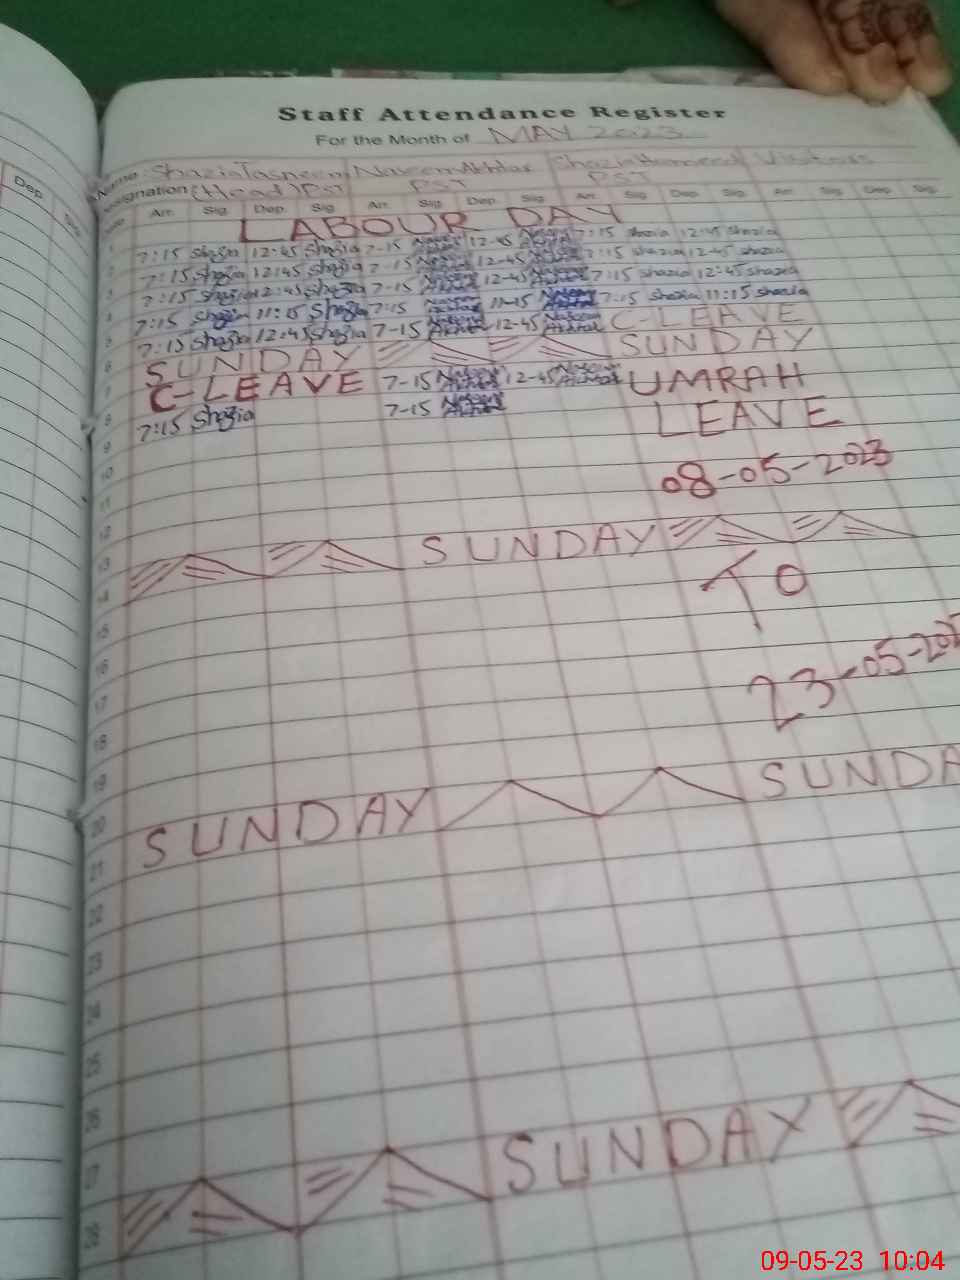 Staff Attendance Register
For the Month of MAY 2023
Dep. Sig.
Name Shazia Tasneem Naseem Akhtar Shazia Hameed Visitors
Designation (Head) PST PST PST
Arr. Sig. Dep. Sig. Arr. Sig. Dep. Sig. Arr. Sig. Dep. Sig. Arr. Sig. Dep. Sig.
1 LABOUR DAY
2 7:15 Shazia 12:45 Shazia 7-15 Naseem Akhtar 12-45 Naseem Akhtar 7:15 Shazia 12:45 Shazia
3 7:15 Shazia 12:45 Shazia 7-15 Naseem Akhtar 12-45 Naseem Akhtar 7:15 Shazia 12:45 Shazia
4 7:15 Shazia 12:45 Shazia 7-15 Naseem Akhtar 12-45 Naseem Akhtar 7:15 Shazia 12:45 Shazia
5 7:15 Shazia 11:15 Shazia 7:15 Naseem Akhtar 11-15 Naseem Akhtar 7:15 Shazia 11:15 Shazia
6 7:15 Shazia 12:45 Shazia 7-15 Naseem Akhtar 12-45 Naseem Akhtar C-LEAVE
7 SUNDAY SUNDAY
8 C-LEAVE 7-15 Naseem Akhtar 12-45 Naseem Akhtar UMRAH
9 7:15 Shazia 7-15 Naseem Akhtar LEAVE
10
11 08-05-2023
12
13
14 SUNDAY
15 TO
16
17
18 23-05-202
19
20
21 SUNDAY SUNDA
22
23
24
25
26
27
28 SUNDAY
09-05-23 10:04